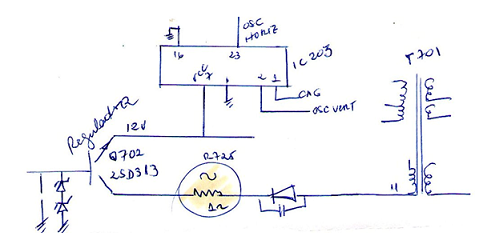 OSC
HORIZ
16
23
IC 203
T701
2
1
CAG
OSC VERT
Regulador
12V
Q702
2SD313
R725
11